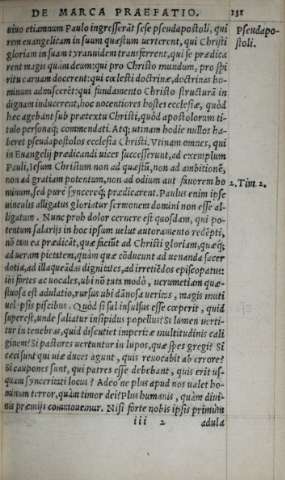 DE MARCA PRAEFATIO. 231
uiuo etiamnum Paulo ingresserāt sese pseudapostoli, qui
rem euangelicam in suum quæstum uerterent, qui Christi
gloriam in suam tyrannidem transferrent, qui se prædica
rent magis quàm deum: qui pro Christo mundum, pro spi
ritu carnem docerent: qui cœlesti doctrinæ, doctrinas ho-
minum admiscerēt: qui fundamento Christo structurā in
dignam inducerent, hoc nocentiores hostes ecclesiæ, quòd
hæc agebāt sub prætextu Christi, quòd apostolorum ti-
tulo personaq́; commendati. Atq; utinam hodie nullos ha-
beret pseudapostolos ecclesia Christi. Vtinam omnes, qui
in Euangelij prædicandi uices successerunt, ad exemplum
Pauli, Iesum Christum non ad quæstū, non ad ambitionē,
non ad gratiam potentum, non ad odium aut fauorem ho
minum, sed pure synceréq; prædicarent. Paulus enim ipse
uinculis alligatus gloriatur sermonem domini non esse al-
ligatum. Nunc prob dolor cernere est quosdam, qui po-
tentum salarijs in hoc ipsum uelut autoramento redēpti,
nō tam ea prædicāt, quæ faciūt ad Christi gloriam, quæq́;
ad ueram pietatem, quàm quæ cōducunt ad uenanda sacer
dotia, ad illaqueādas dignitates, ad irretiēdos episcopatus:
ibi fortes ac uocales, ubi nō tutò modò, uerumetiam quæ-
stuosa est adulatio, rursus ubi dānosa ueritas, magis muti
uel ipsis piscibus. Quòd si sal insulsus esse cœperit, quid
superest, unde saliatur insipidus populus? Si lumen uerti-
tur in tenebras, quid discutiet imperitæ multitudinis cali
ginem? Si pastores uertuntur in lupos, quæ spes gregi? Si
cæci sunt qui uiæ duces agunt, quis reuocabit ab errore?
Si caupones sunt, qui patres esse debebant, quis erit us-
quam synceritati locus? Adeo'ne plus apud nos ualet ho-
minum terror, quàm timor dei? Plus humanis, quàm diui-
nis præmijs commouemur. Nisi forte nobis ipsis primum
iii 2 adula
Pseudapo-
stoli.
2. Tim. 2.